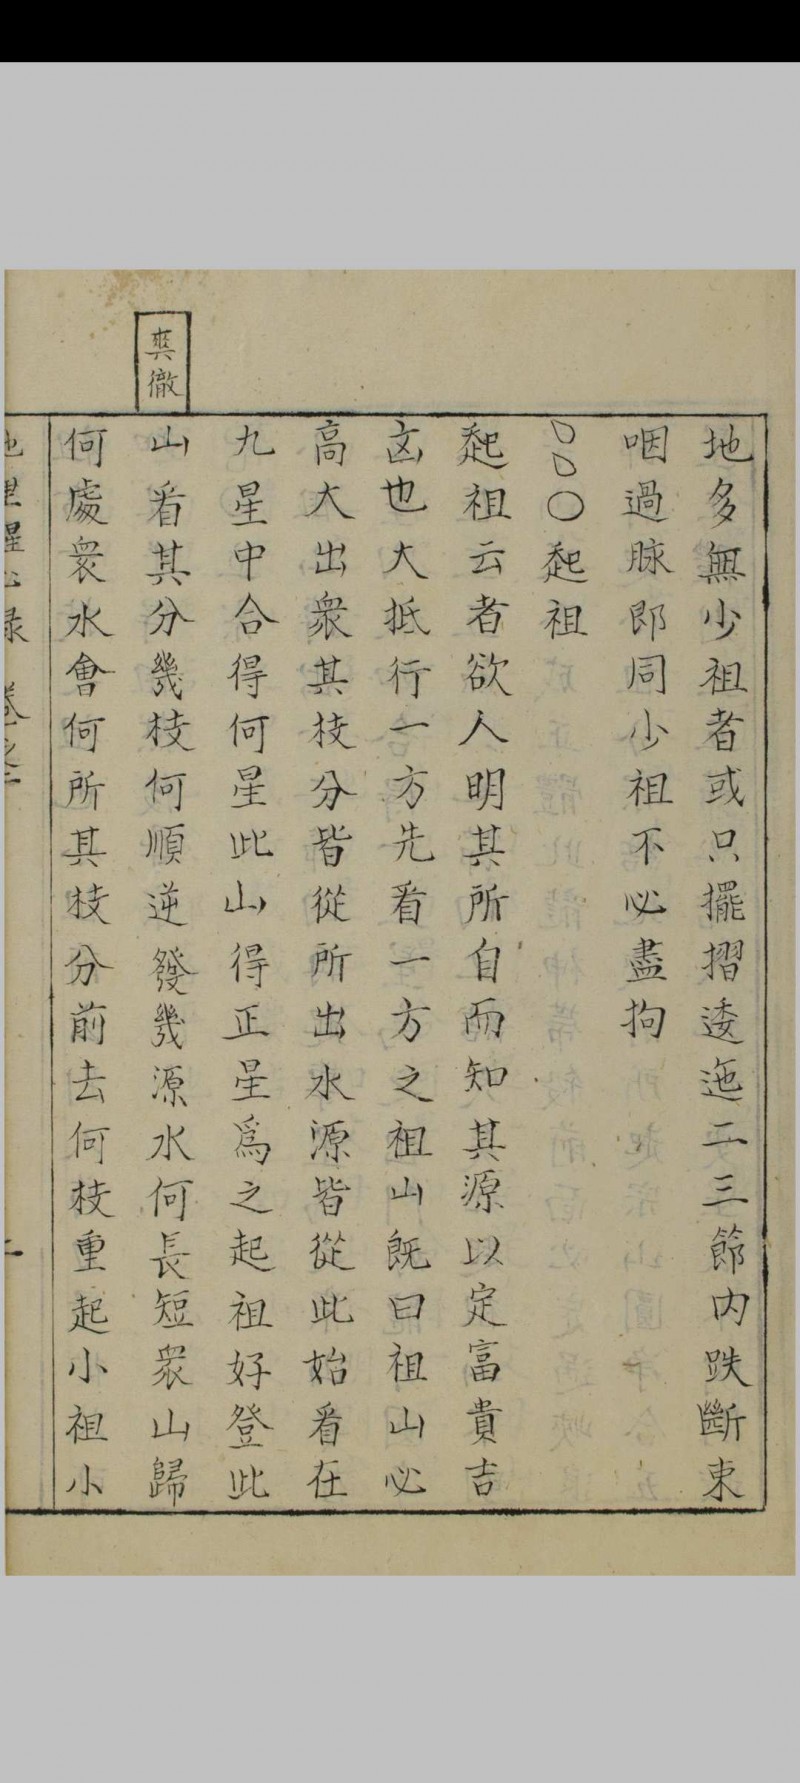 爽徹
地多無少祖者或只擺摺逶迤二三節内跌斷束
咽過脉即同少祖不必盡拘
○○○起祖
起祖云者欲人明其所自而知其源以定富貴吉
凶也大抵行一方先看一方之祖山既曰祖山必
高大出衆其枝分皆從所出水源皆從此始看在
九星中合得何星此山得正星爲之起祖好登此
山看其分幾枝何順逆發幾源水何長短衆山歸
何處衆水會何所其枝分前去何枝重起小祖小